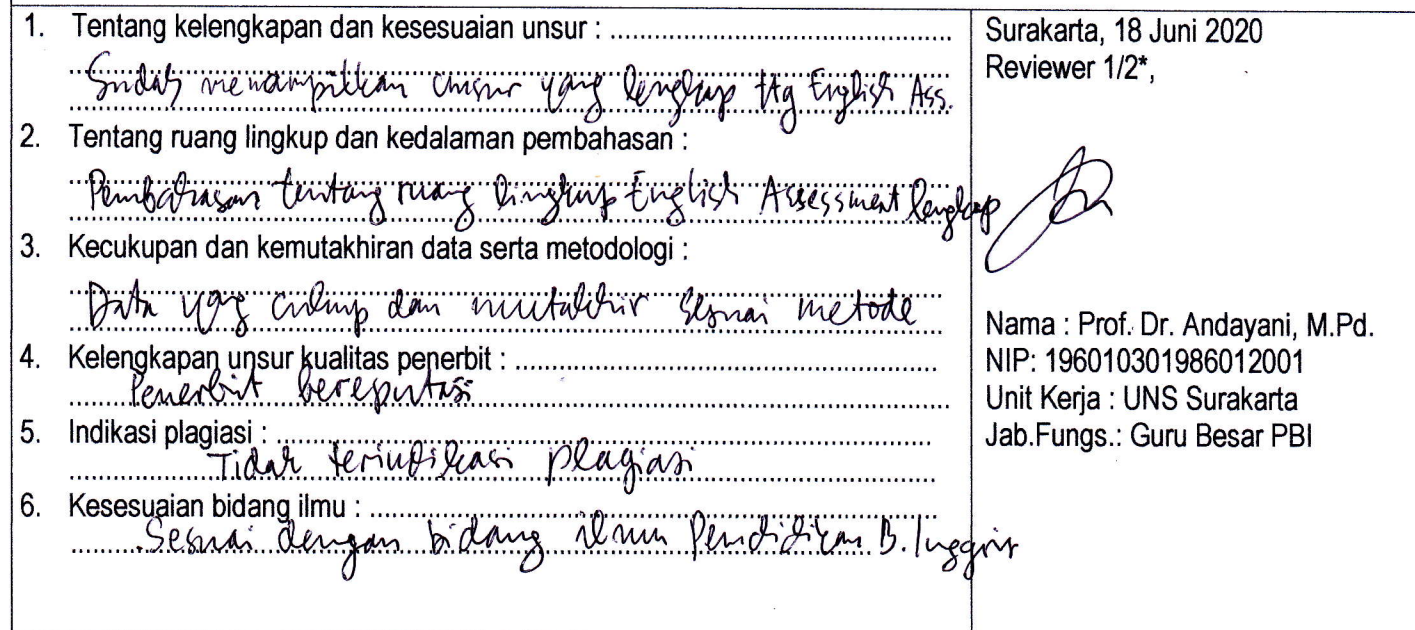 1. Tentang kelengkapan dan kesesuaian unsur : ......................................................
Sudah menampilkan unsur yang lengkap ttg English Ass.
2. Tentang ruang lingkup dan kedalaman pembahasan :
Pembahasan tentang ruang lingkup English Assessment lengkap
3. Kecukupan dan kemutakhiran data serta metodologi :
Data yang cukup dan mutakhir sesuai metode
4. Kelengkapan unsur kualitas penerbit : ......................................................
Penerbit bereputasi
5. Indikasi plagiasi : ......................................................
Tidak terindikasi plagiasi
6. Kesesuaian bidang ilmu : ......................................................
Sesuai dengan bidang ilmu Pendidikan B. Inggris
Surakarta, 18 Juni 2020
Reviewer 1/2*,
Nama : Prof. Dr. Andayani, M.Pd.
NIP: 196010301986012001
Unit Kerja : UNS Surakarta
Jab.Fungs.: Guru Besar PBI